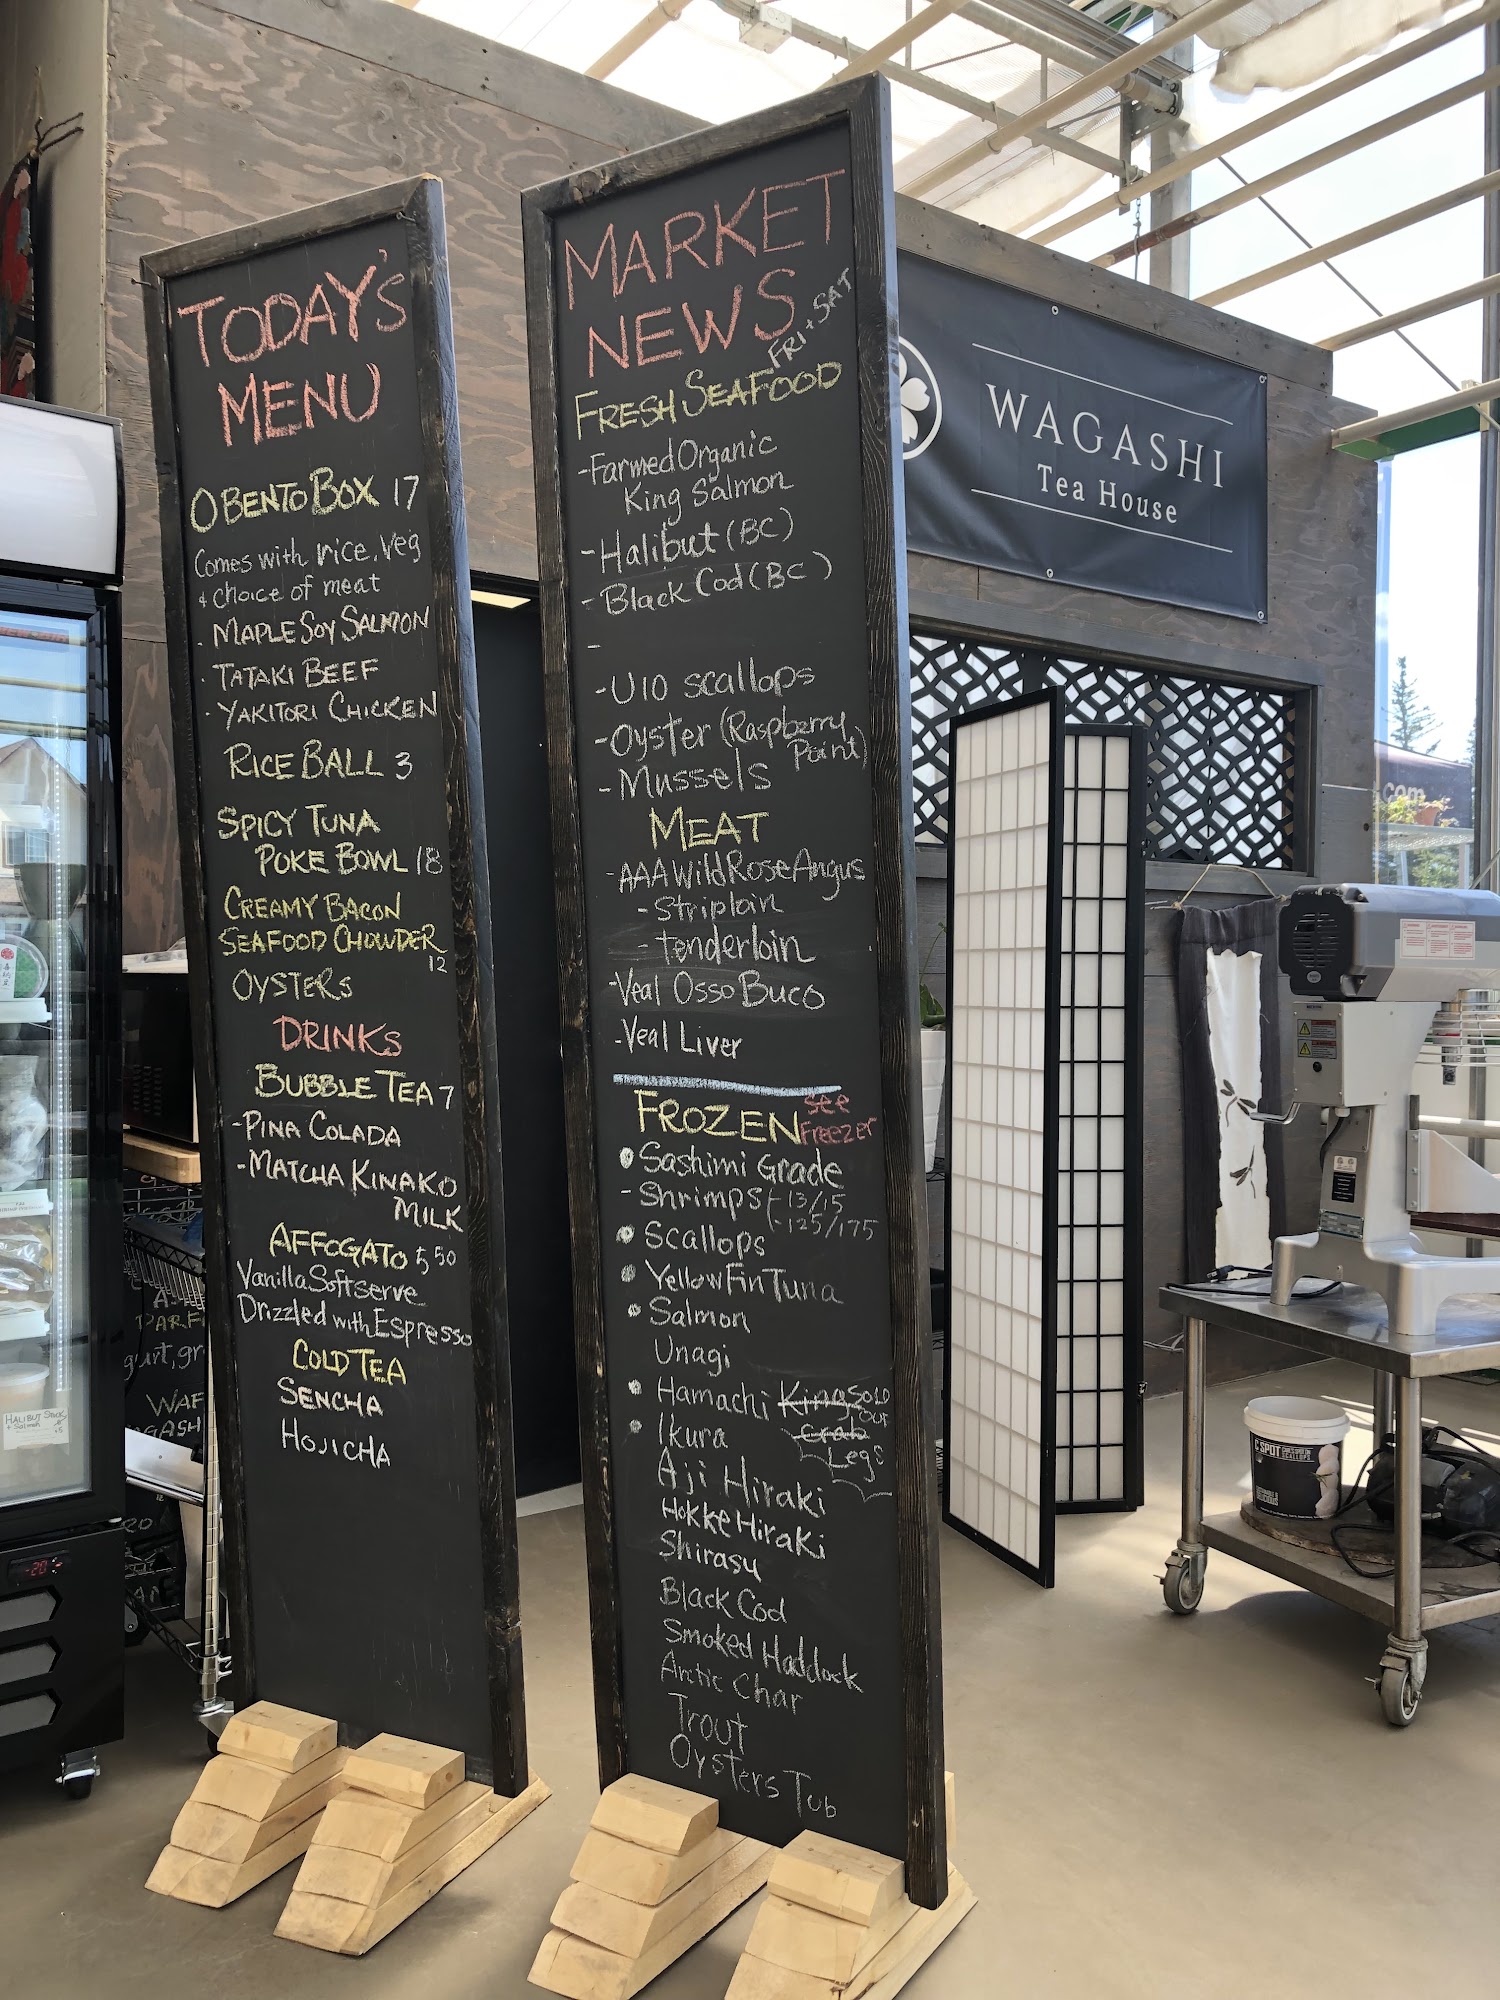 TODAY'S
MENU
OBENTO BOX 17
Comes with rice, veg
+ choice of meat
· MAPLE SOY SALMON
· TATAKI BEEF
· YAKITORI CHICKEN
RICE BALL 3
SPICY TUNA
POKE BOWL 18
CREAMY BACON
SEAFOOD CHOWDER
12
OYSTERS
DRINKS
BUBBLE TEA 7
-PINA COLADA
-MATCHA KINAKO
MILK
AFFOGATO 5 50
Vanilla Softserve
Drizzled with Espresso
COLD TEA
SENCHA
HOJICHA
MARKET
NEWS
FRI + SAT
FRESH SEAFOOD
-Farmed Organic
King Salmon
-Halibut (BC)
-Black Cod (BC)
-
-U10 scallops
-Oyster (Raspberry
Point)
-Mussels
MEAT
-AAA Wild Rose Angus
-Striploin
-tenderloin
-Veal Osso Buco
-Veal Liver
FROZEN see
Freezer
Sashimi Grade
-Shrimps -13/15
-125/175
Scallops
Yellow Fin Tuna
Salmon
Unagi
Hamachi
King Crab Legs
SOLD OUT
Ikura
Aji Hiraki
Hokke Hiraki
Shirasu
Black Cod
Smoked Haddock
Arctic Char
Trout
Oysters Tub
WAGASHI
Tea House
.com
HALIBUT
+ Salmon
-20
C SPOT
SCALLOPS